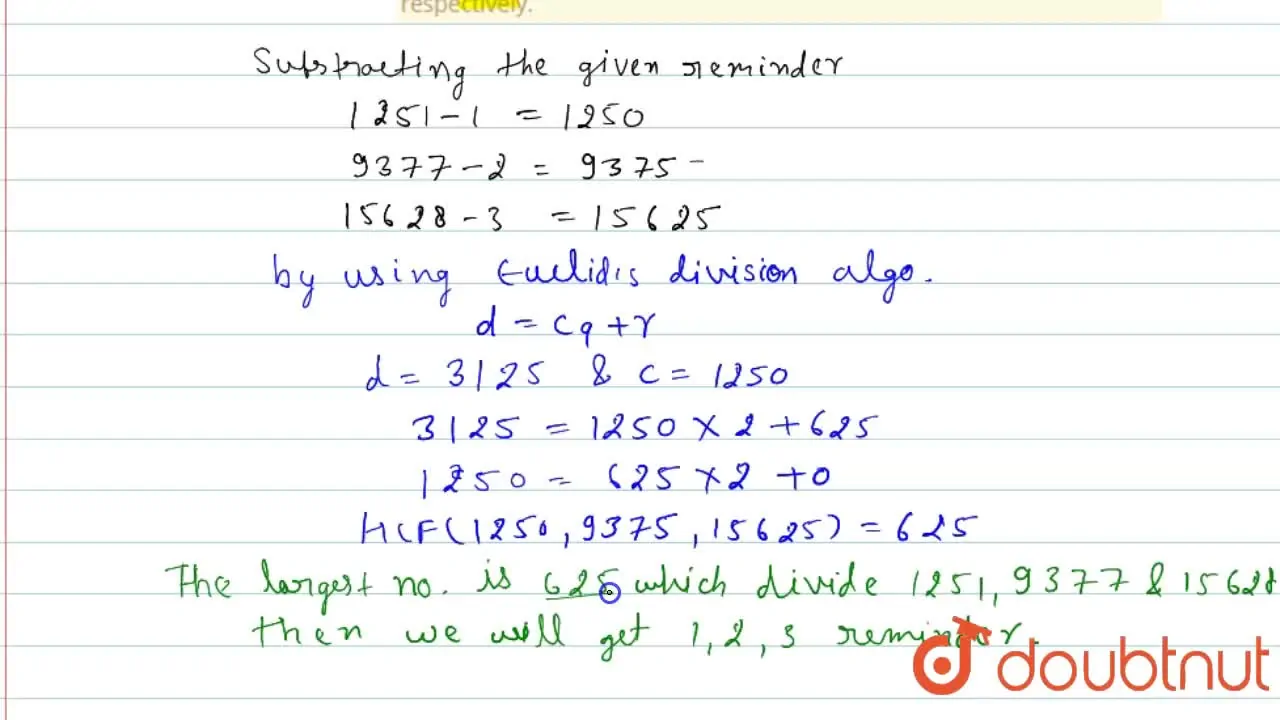 respectively.
Substracting the given reminder
1251 - 1 = 1250
9377 - 2 = 9375 -
15628 - 3 = 15625
by using Euclid's division algo.
d = cq + r
d = 3125 & c = 1250
3125 = 1250 × 2 + 625
1250 = 625 × 2 + 0
HCF(1250, 9375, 15625) = 625
The largest no. is 625 which divide 1251, 9377 & 15628
then we will get 1, 2, 3 reminder.
doubtnut